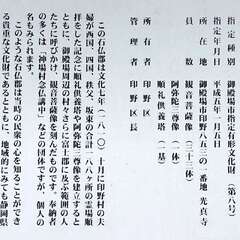 指定種別　御殿場市指定有形文化財（第八号）
指定年月日　平成五年一月五日
所在地　御殿場市印野八五三の一番地　光真寺
員数　観音菩薩像（三十三体）
阿弥陀三尊（一体）
順礼供養塔（一基）
所有者　印野区
管理者　印野区長
この石仏郡は文化七年（一八一〇）十月に印野村の夫
婦が西国、四国、秩父、坂東の合計一八八ヶ所の霊場順
拝をした記念に順礼供養塔や阿弥陀三尊像を建立すると
ともに、御殿場周辺の村々さらに富士郡に及ぶ範囲の人
たちに呼びかけ、観音菩薩像を刻んだものです。奉納者
の多くは「神場村念仏講中」などの団体ですが、個人の
名もみられます。
このような石仏郡は当時の民衆の心を知ることができ
る貴重な文化財であるとともに、地域的にみても静岡県